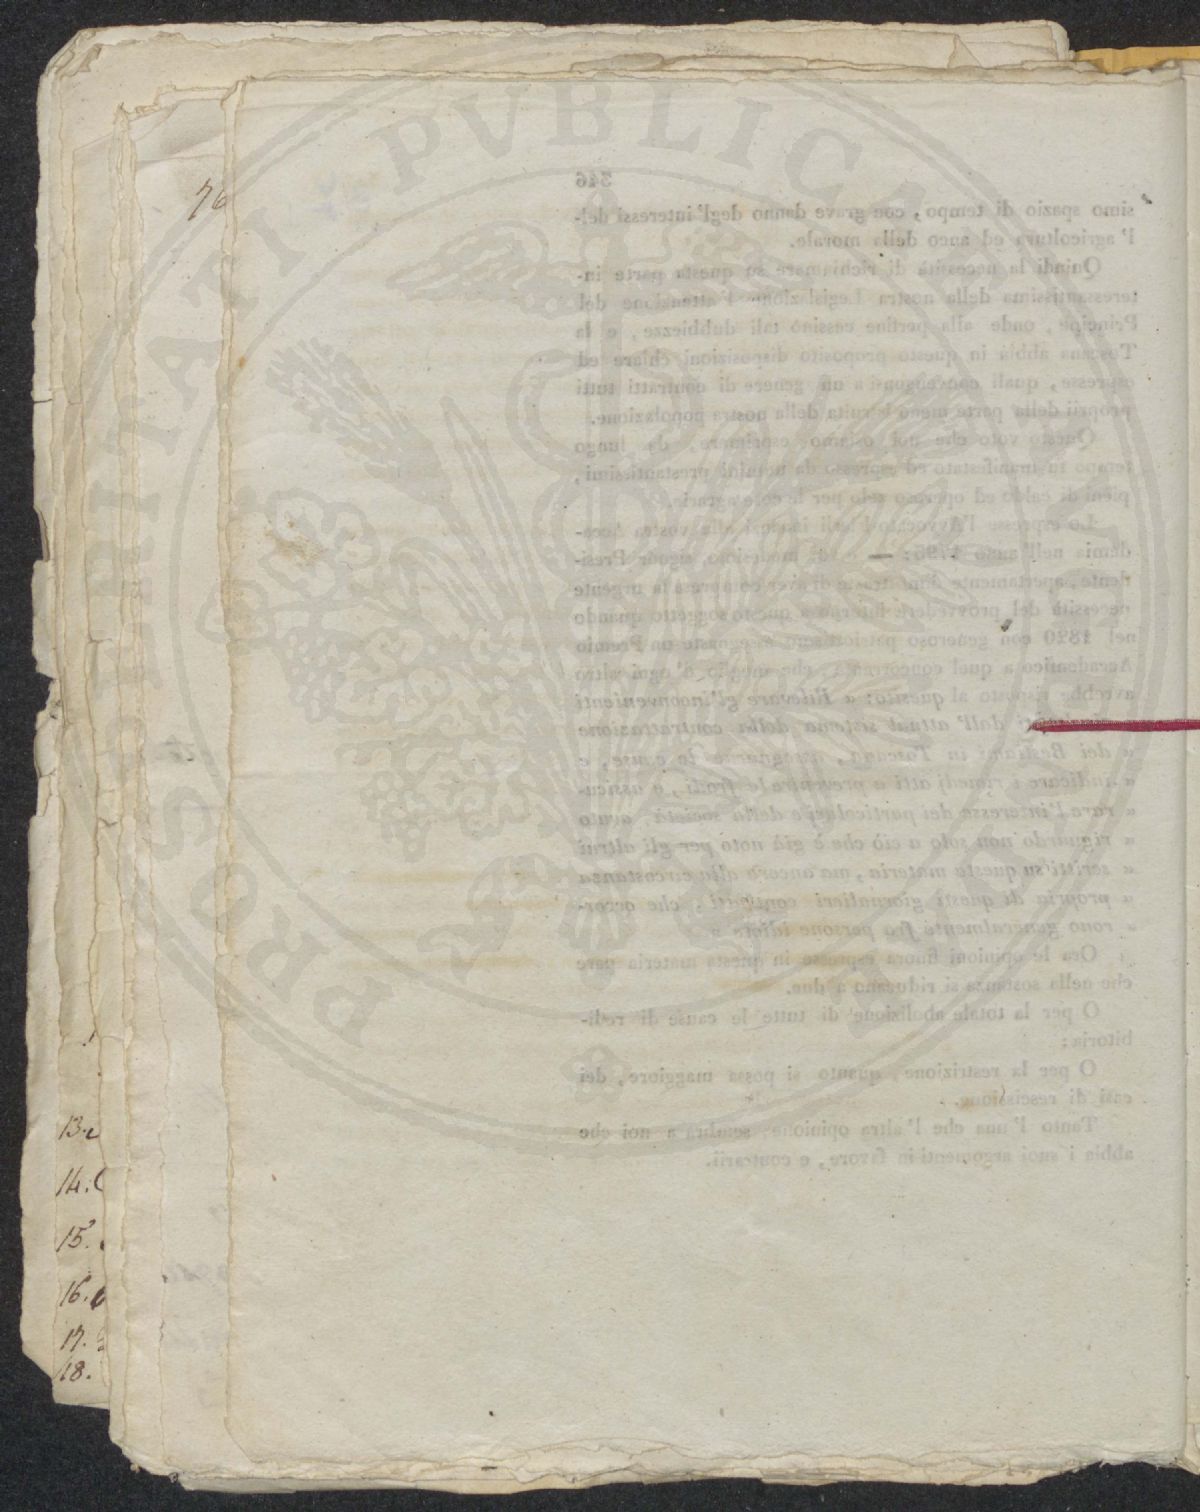 PROSPERITATI PVBLICAE AVGENDAE
76
346
simo spazio di tempo, con grave danno degl'interessi del-
l'agricoltura ed anco della morale.
Quindi la necessità di richiamare su questa parte in-
teressantissima della nostra Legislazione l'attenzione del
Principe, onde alla perfine cessino tali dubbiezze, e la
Toscana abbia in questo proposito disposizioni chiare ed
espresse, quali convengonsi a un genere di contratti tutti
proprii della parte meno istruita della nostra popolazione.
Questo voto che noi osiamo esprimere, da lungo
tempo fu manifestato ed espresso da uomini prestantissimi,
pieni di caldo ed operoso zelo per le cose agrarie.
Lo espresse l'Avvocato innanzi alla vostra Acca-
demia nell'anno 1796: — e di medesimo, signor Presi-
dente, apertamente dimostraste di aver compresa la urgente
necessità del provvedere intorno a questo soggetto quando
nel 1820 con generoso patriottismo assegnaste un Premio
Accademico a quel concorrente, che meglio d'ogni altro
avrebbe risposto al quesito: « Rilevare gl'inconvenienti
dall'attual sistema della contrattazione
« dei Bestiami in Toscana, assegnarne le cause, e
« indicare i rimedi atti a prevenire le frodi, o assicu-
« rare l'interesse dei particolari e della società, avuto
« riguardo non solo a ciò che è già noto per gli altrui
« scritti su questa materia, ma ancora alla circostanza
« propria di questi giornalieri contratti, che occor-
« rono generalmente fra persone idiote ».
Ora le opinioni finora espresse in questa materia pare
che nella sostanza si riducano a due.
O per la totale abolizione di tutte le cause di redi-
bitoria;
O per la restrizione, quanto si possa maggiore, dei
casi di rescissione.
Tanto l'una che l'altra opinione sembra a noi che
abbia i suoi argomenti in favore, e contrarii.
13.
14.
15.
16.
17.
18.